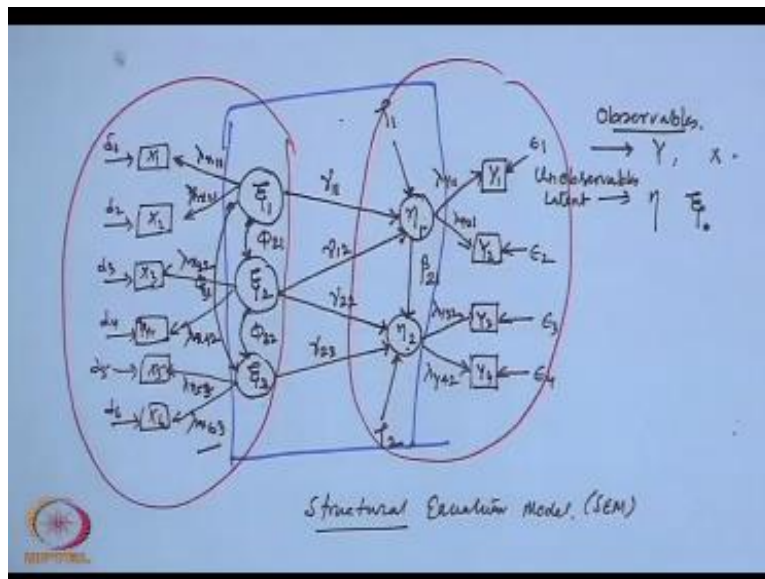 δ1 X1 λx11
δ2 X2 λx21
δ3 X3 λx32
δ4 X4 λx42
δ5 X5 λx53
δ6 X6 λx63
ξ1
ξ2
ξ3
Φ21
Φ32
γ11
γ12
γ22
γ23
ζ1
η1
β21
η2
ζ2
λy11 Y1 ε1
λy21 Y2 ε2
λy32 Y3 ε3
λy42 Y4 ε4
Observables.
→ Y, X.
Unobservables
Latent → η ξ.
Structural Equation Model. (SEM)